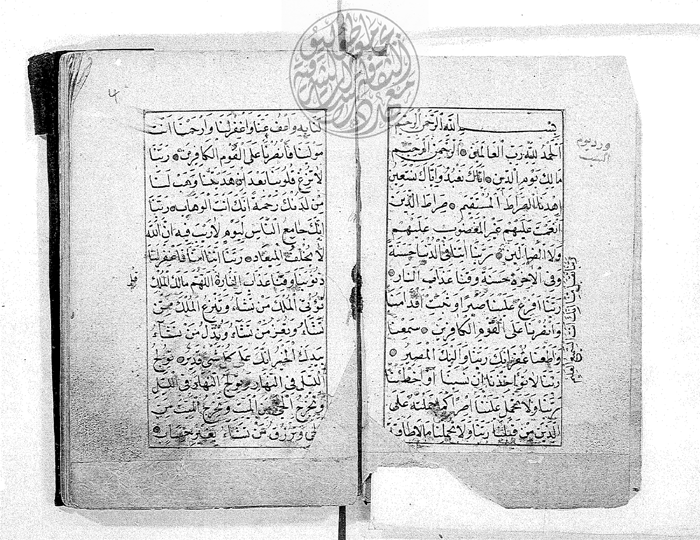 بسم الله الرحمن الرحيم
الحمد لله رب العالمين الرحمن الرحيم
مالك يوم الدين اياك نعبد واياك نستعين
اهدنا الصراط المستقيم صراط الذين
انعمت عليهم غير المغضوب عليهم
ولا الضالين ربنا اتنا في الدنيا حسنة
وفي الاخرة حسنة وقنا عذاب النار
ربنا افرغ علينا صبرا وثبت اقدامنا
وانصرنا على القوم الكافرين سمعنا
واطعنا غفرانك ربنا واليك المصير
ربنا لا تؤاخذنا ان نسينا او اخطأنا
ربنا ولا تحمل علينا اصرا كما حملته على
الذين من قبلنا ربنا ولا تحملنا ما لا طاقة
ربنا تقبل منا انك انت السميع العليم
لنا به واعف عنا واغفر لنا وارحمنا انت
مولنا فانصرنا على القوم الكافرين ربنا
لا تزغ قلوبنا بعد اذ هديتنا وهب لنا
من لدنك رحمة انك انت الوهاب ربنا
انك جامع الناس ليوم لا ريب فيه ان الله
لا يخلف الميعاد ربنا اننا امنا فاغفر لنا
ذنوبنا وقنا عذاب النار قل اللهم مالك الملك
تؤتي الملك من تشاء وتنزع الملك ممن
تشاء وتعز من تشاء وتذل من تشاء
بيدك الخير انك على كل شئ قدير تولج
الليل في النهار وتولج النهار في الليل
وتخرج الحي من الميت وتخرج الميت من
الحي وترزق من تشاء بغير حساب